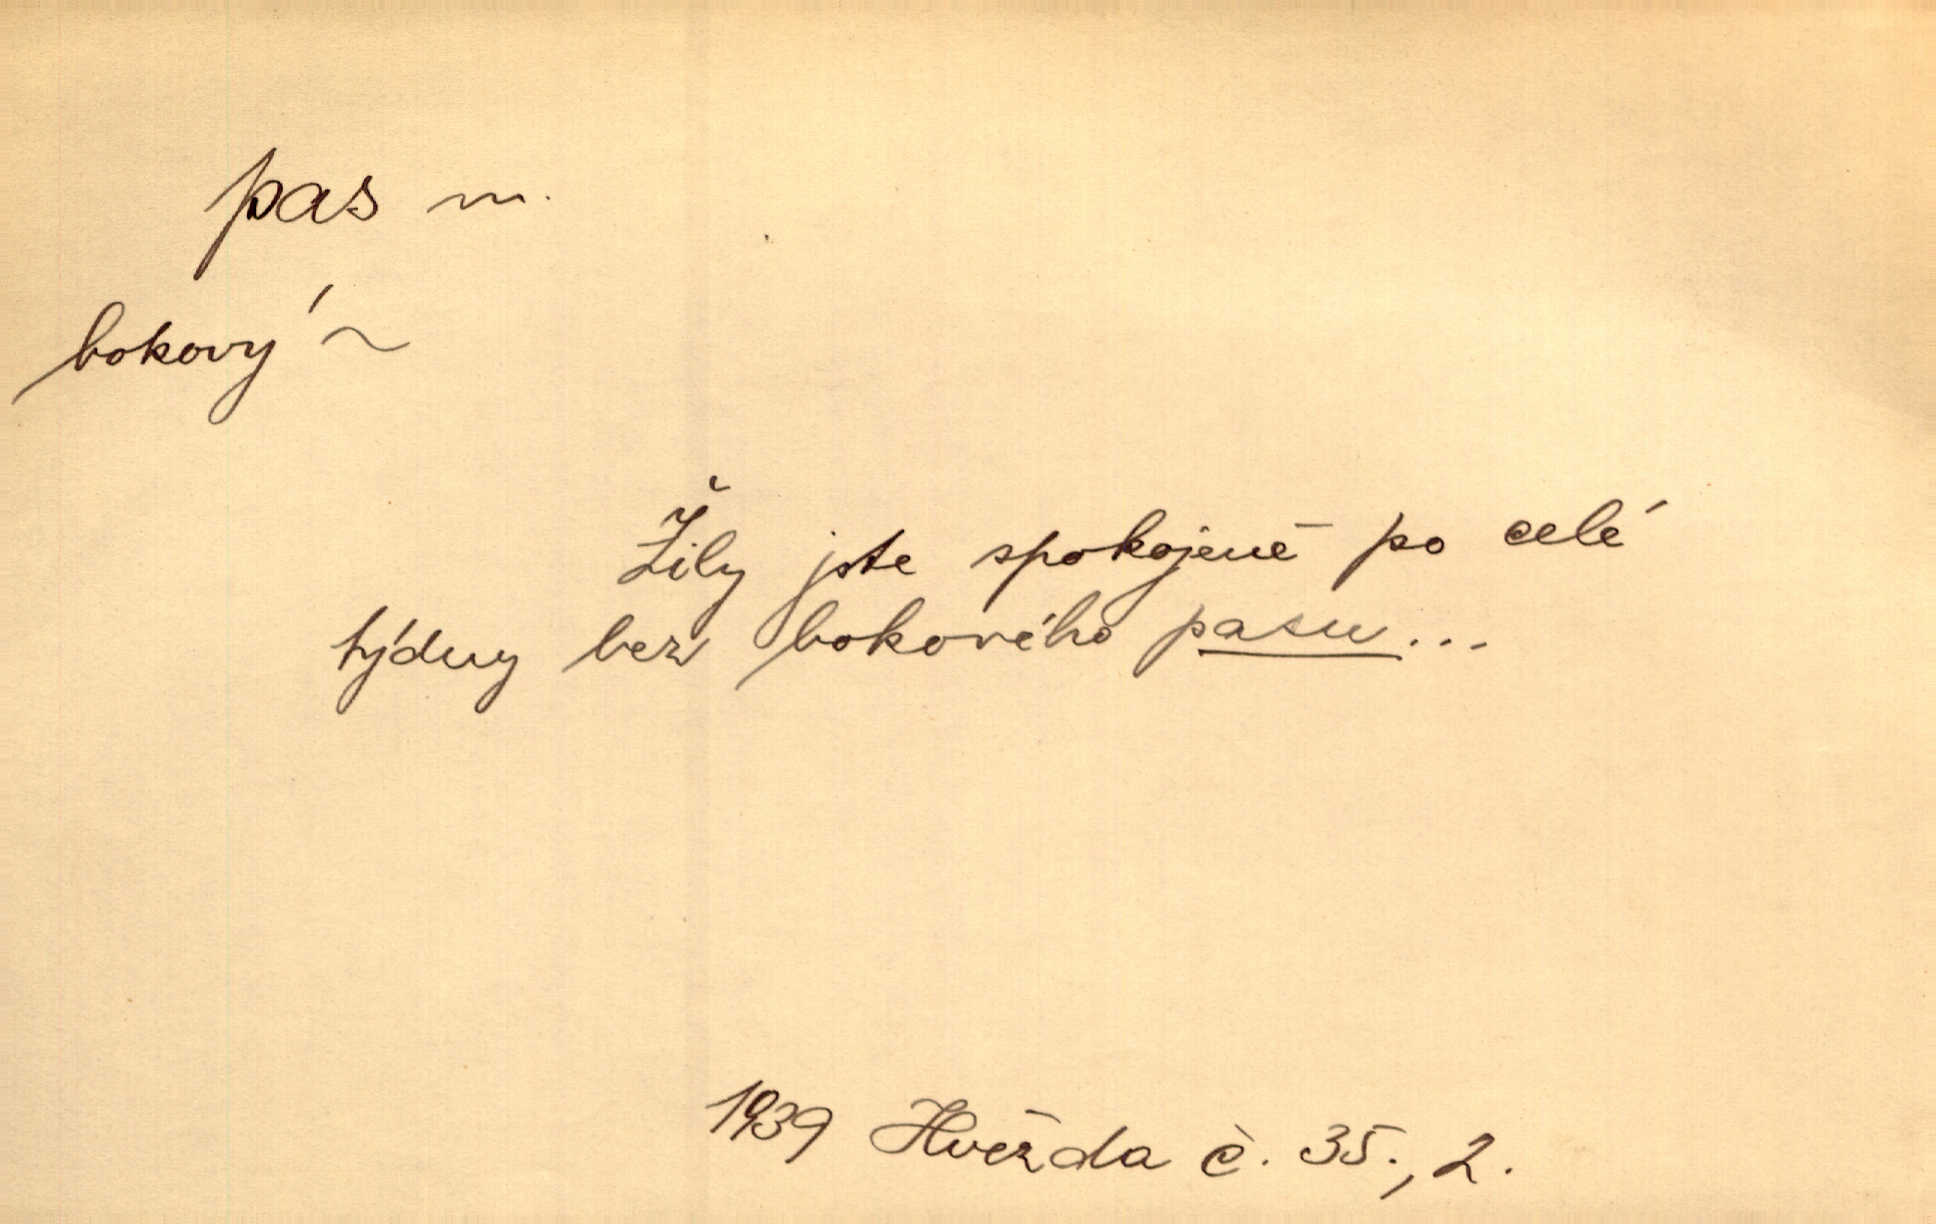 pas m.
bokový ~
Žily jste spokojeně po celé
týdny bez bokového pasu...
1939 Hvězda č. 35., 2.